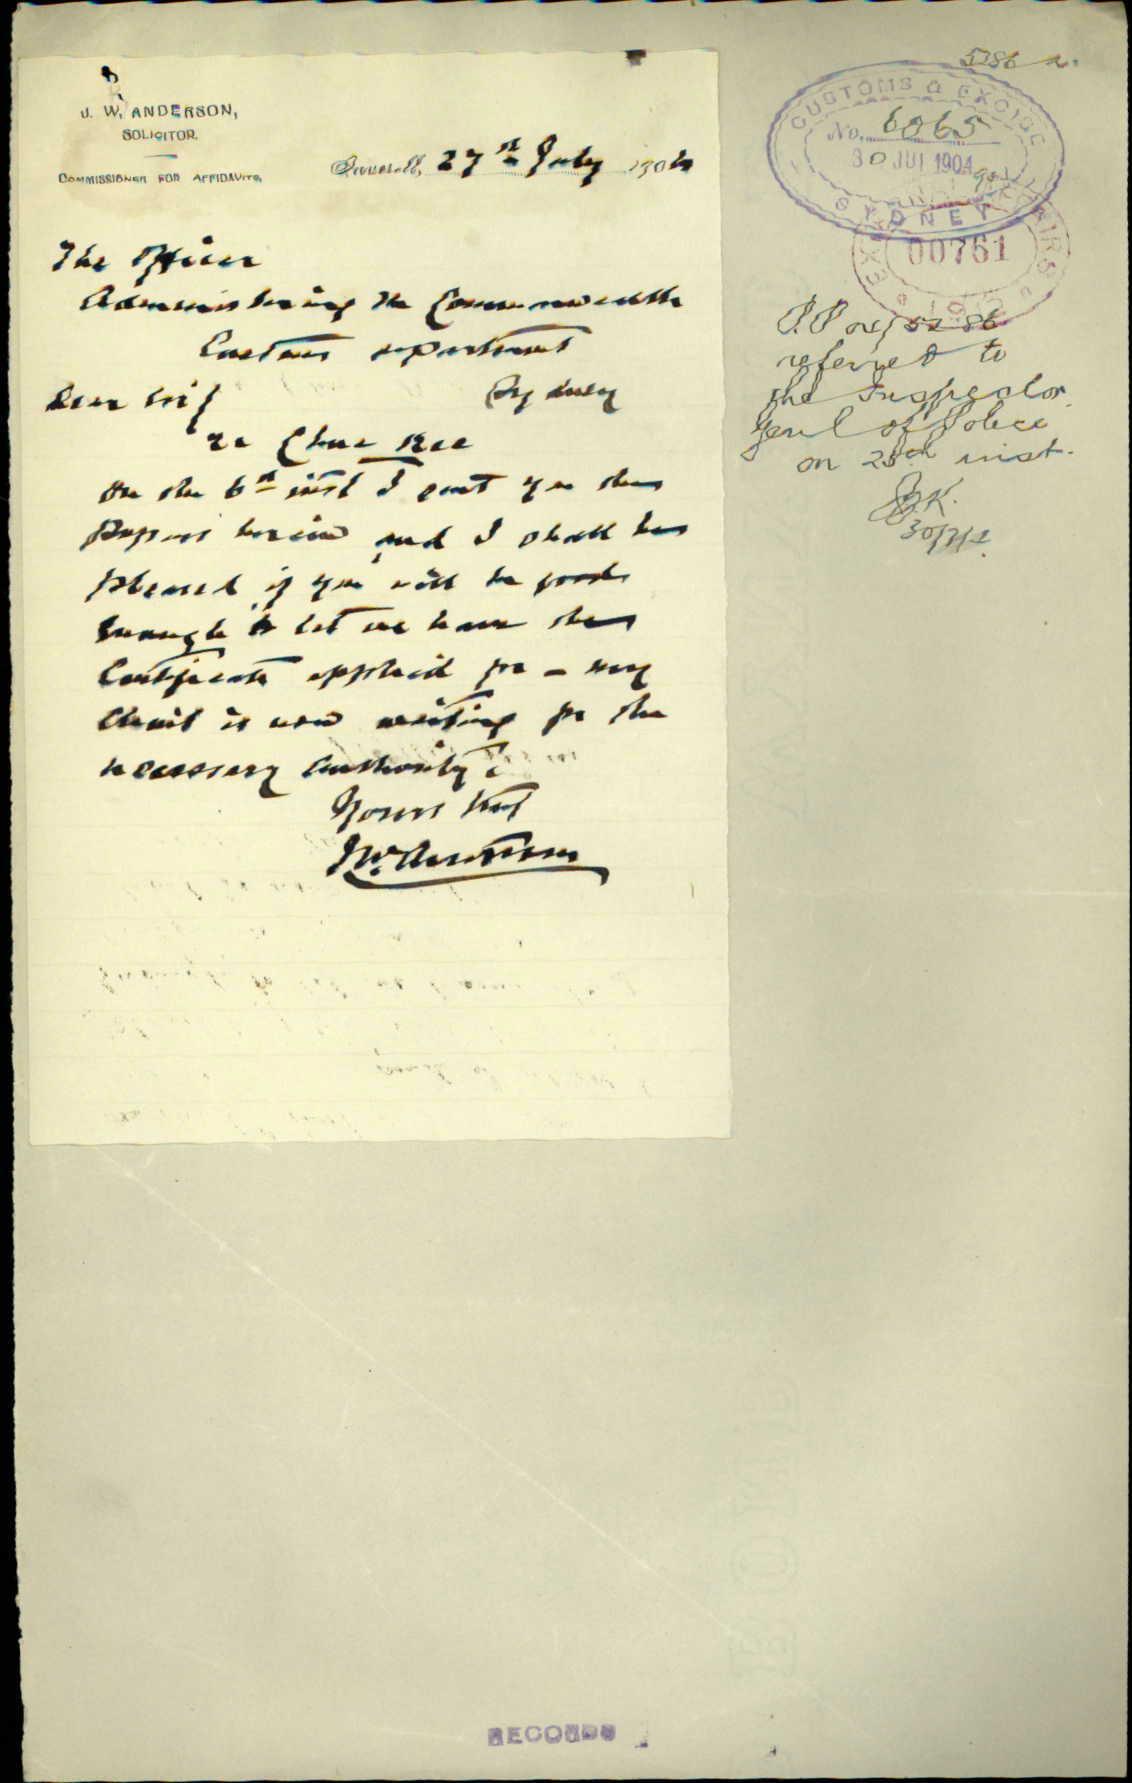 J. W. ANDERSON,
SOLICITOR.
COMMISSIONER FOR AFFIDAVITS.
Inverell, 27th July 1904
The Officer
Administering the Commonwealth
Customs department
Sydney
Dear Sir
re Chue Kee
On the 6th inst I sent you the
Papers herein and I shall be
pleased if you will be good
enough to let me have the
Certificate applied for - my
client is now waiting for the
necessary authority.
Yours truly
JW. Anderson
5286
CUSTOMS & EXCISE
No. 6065
30 JUL 1904
SYDNEY
00761
P.P 04/5286
referred to
the Inspector
Genl of Police
on 25th inst.
30/7/4
RECORDS